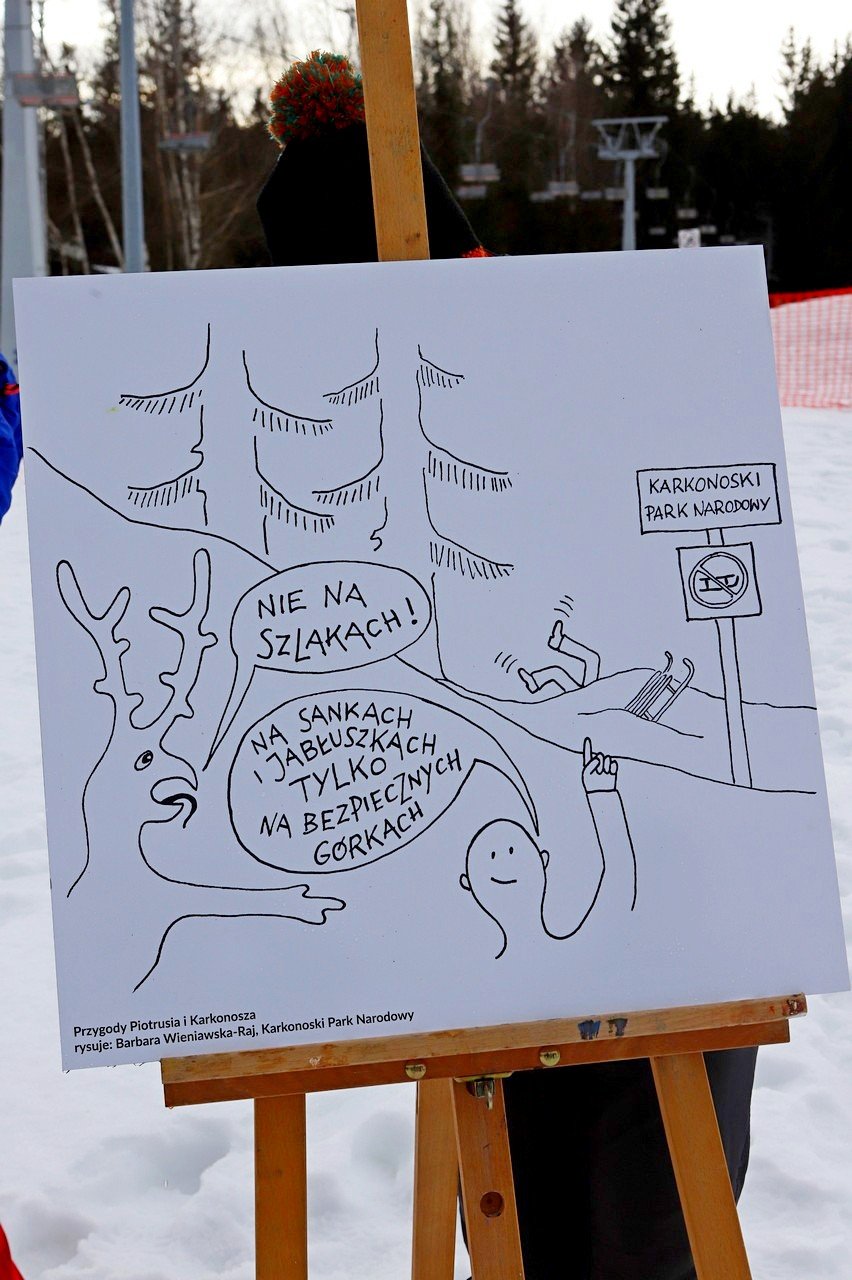 KARKONOSKI
PARK NARODOWY
NIE NA
SZLAKACH!
NA SANKACH
I JABŁUSZKACH
TYLKO
NA BEZPIECZNYCH
GÓRKACH
Przygody Piotrusia i Karkonosza
rysuje: Barbara Wieniawska-Raj, Karkonoski Park Narodowy